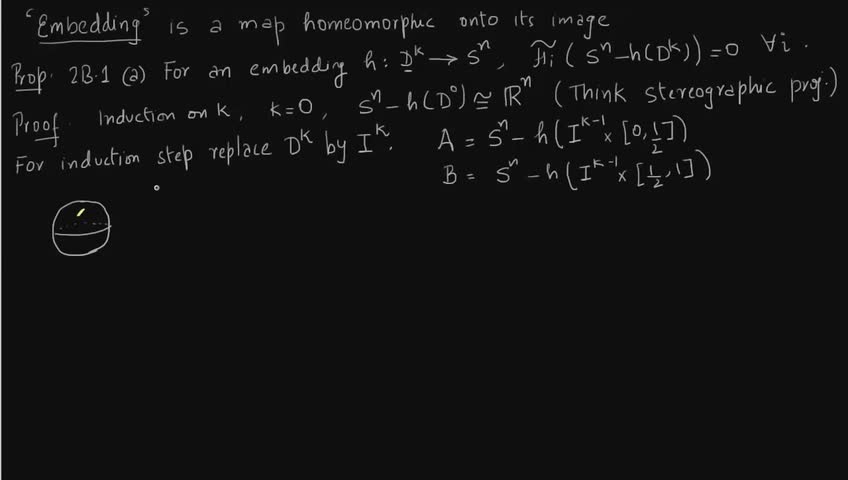 'Embedding' is a map homeomorphic onto its image
Prop. 2B.1 (a) For an embedding h: D^k → S^n, H̃i (S^n - h(D^k)) = 0 ∀i.
Proof. Induction on k, k=0, S^n - h(D^0) ≅ ℝ^n (Think stereographic proj.)
For induction step replace D^k by I^k. A = S^n - h(I^{k-1} × [0, 1/2])
B = S^n - h(I^{k-1} × [1/2, 1])